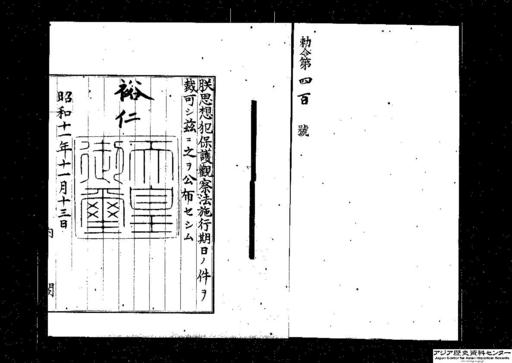 勅令第四百號
朕思想犯保護觀察法施行期日ノ件ヲ
裁可シ茲ニ之ヲ公布セシム
裕仁
天皇
御璽
昭和十一年十一月十三日
内閣
アジア歴史資料センター
Japan Center for Asian Historical Records